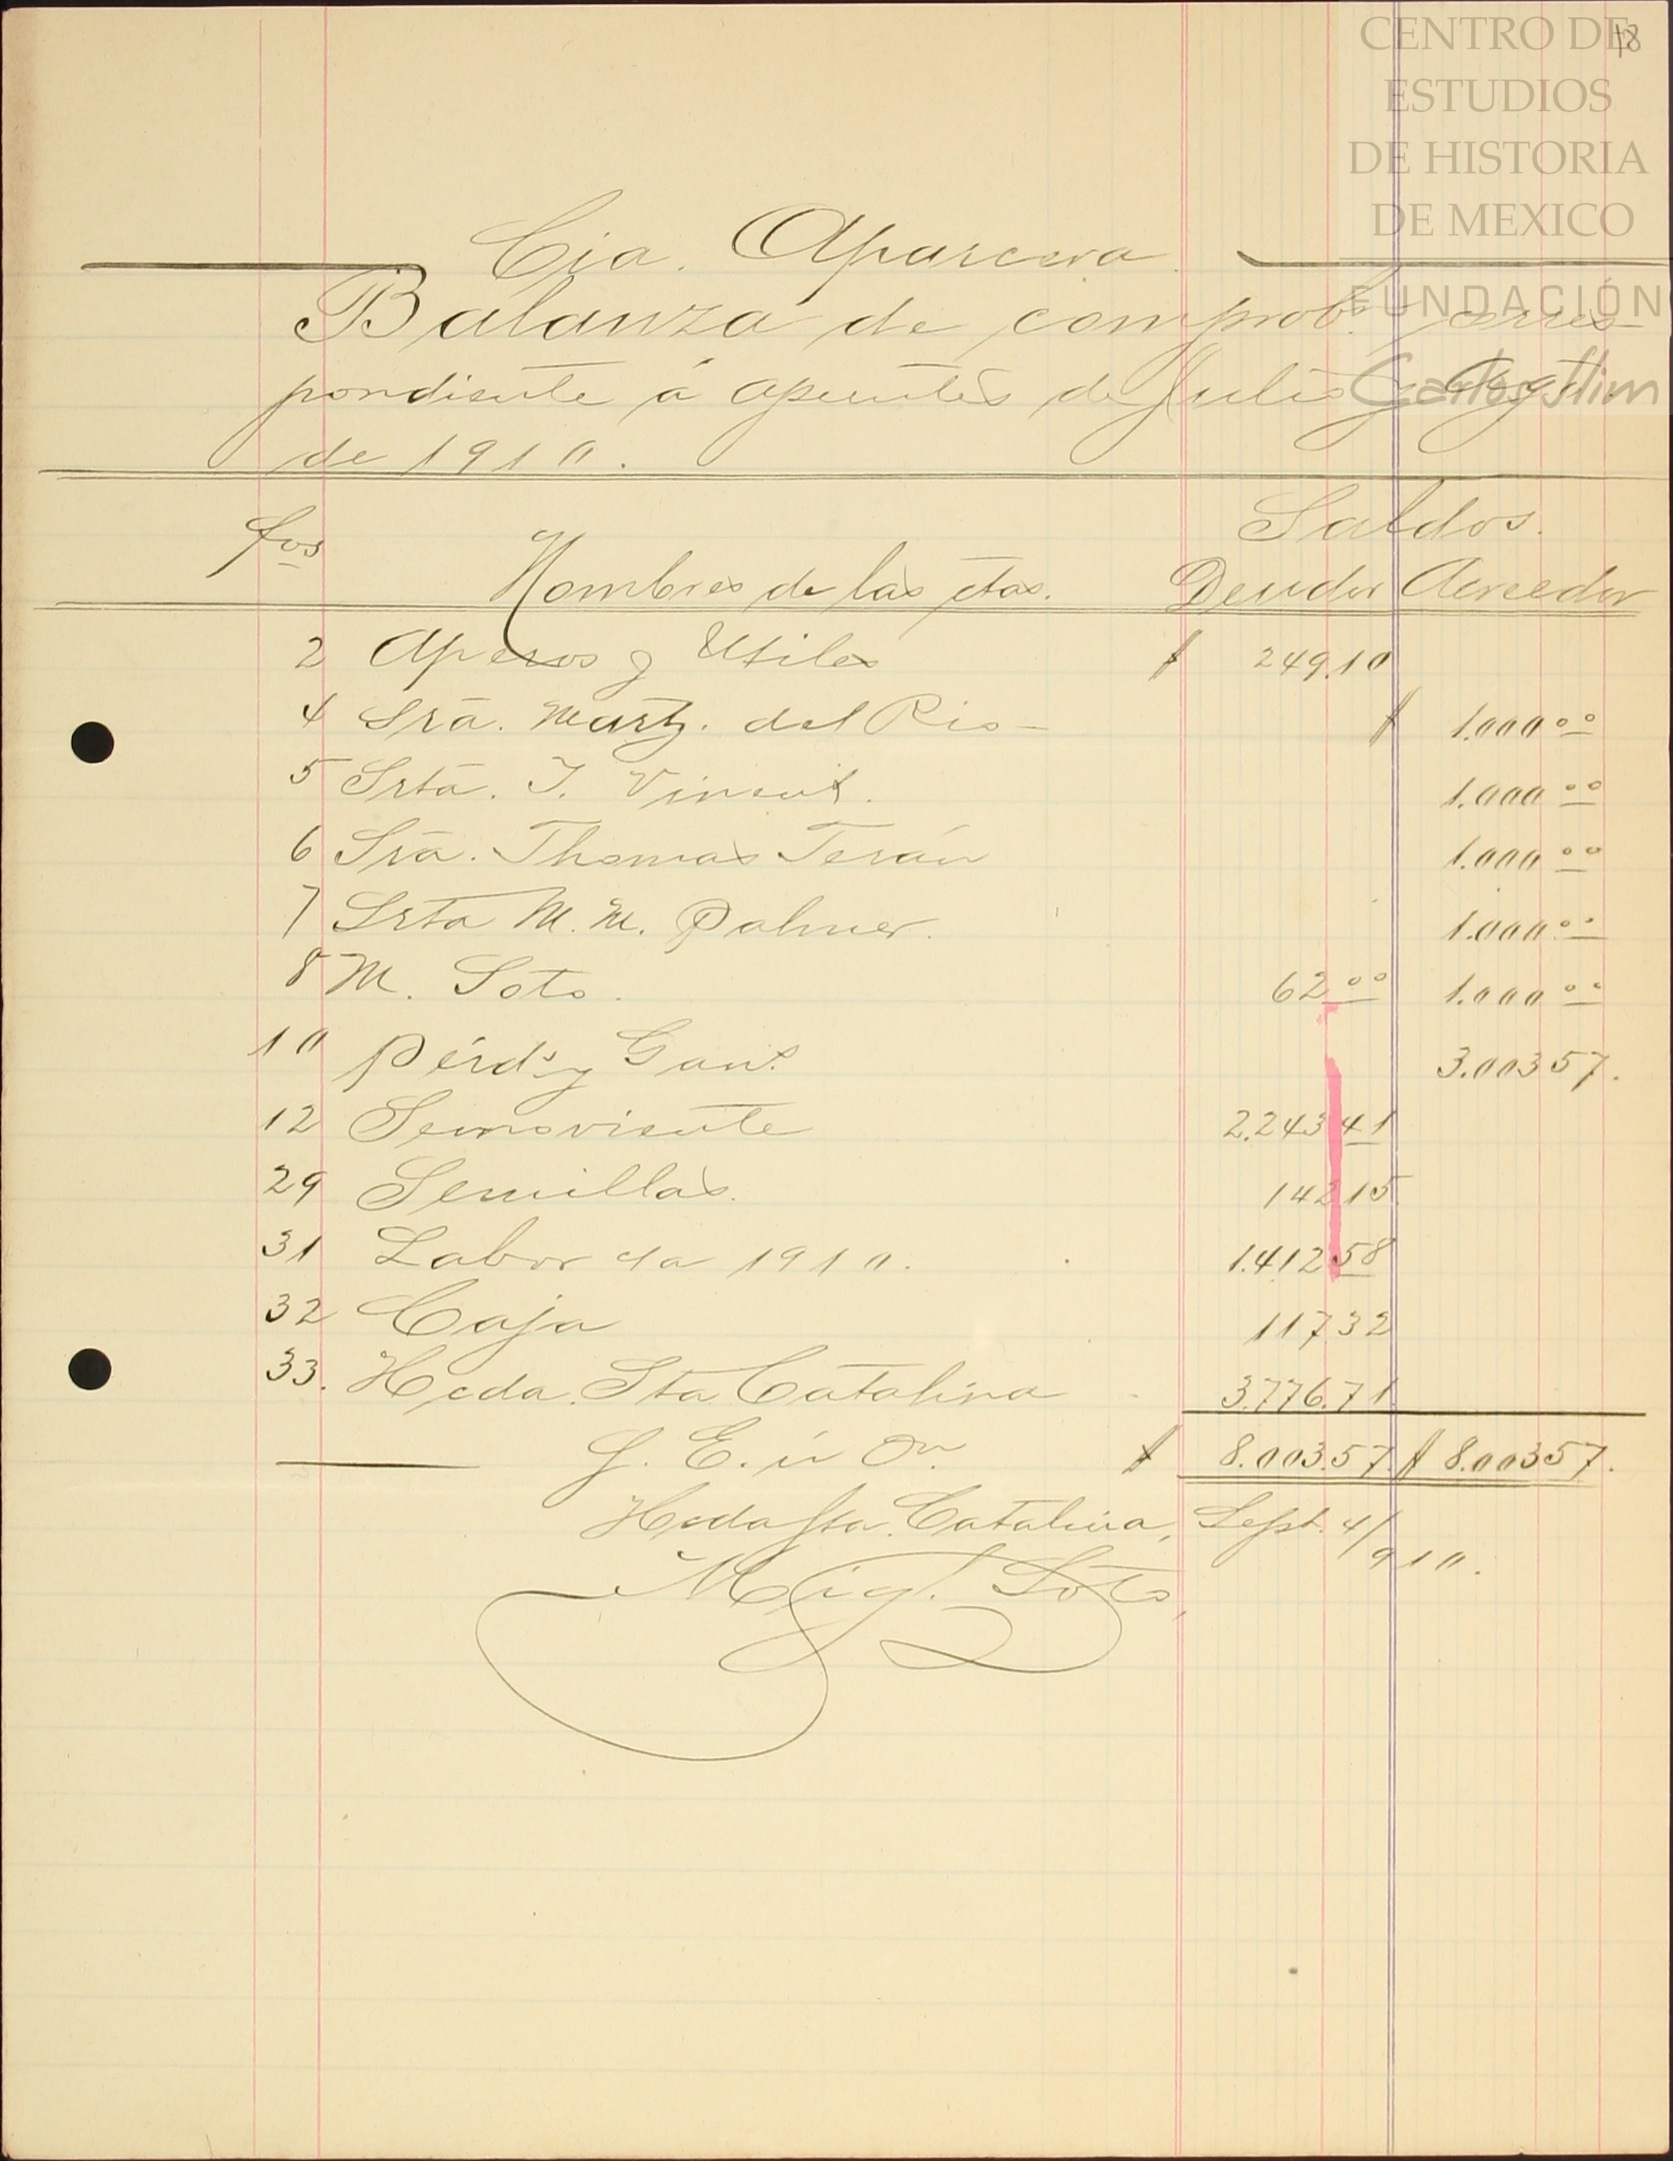 18
CENTRO DE
ESTUDIOS
DE HISTORIA
DE MEXICO
FUNDACIÓN
Carlos Slim
Cia. Aparcera
Balanza de comprobn. corres-
pondiente á apuntes de Julio y Agto.
de 1910.
Saldos.
fos Nombres de las ctas. Deudor Acreedor
2 Aperos y Utiles $ 249.10
4 Sra. Martz. del Rio - $ 1.000 00
5 Srta. I. Vincent. 1.000 00
6 Sra. Thomas Terán 1.000 00
7 Srta M. M. Palmer. 1.000 00
8 M. Soto. 62 00 1.000 00
10 Pérds. y Gans. 3.003 57.
12 Semoviente 2.243 41
29 Semillas. 142 15
31 Labor de 1910. 1.412 58
32 Caja 117 32
33. Hcda. Sta Catalina 3.776.71
S. E. ú On. $ 8.003.57 $ 8.003 57.
Hcda Sta. Catalina, Sept. 4/910.
Migl. Soto